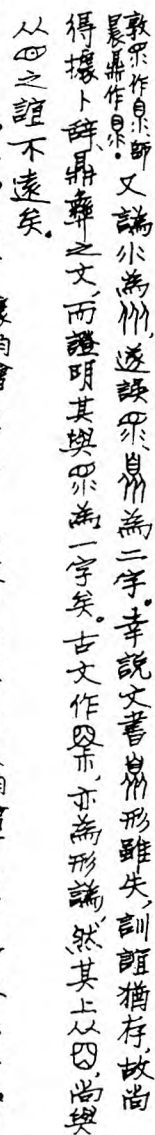 敦眔作、師
晨鼎作。
又譌為,遂誤眔、臮為二字。幸說文書臮形雖失,訓誼猶存,故尚
得據卜辭、鼎彝之文,而證明其與眔為一字矣。古文作,亦為形譌,然其上从囧,尚與
从之誼不遠矣。